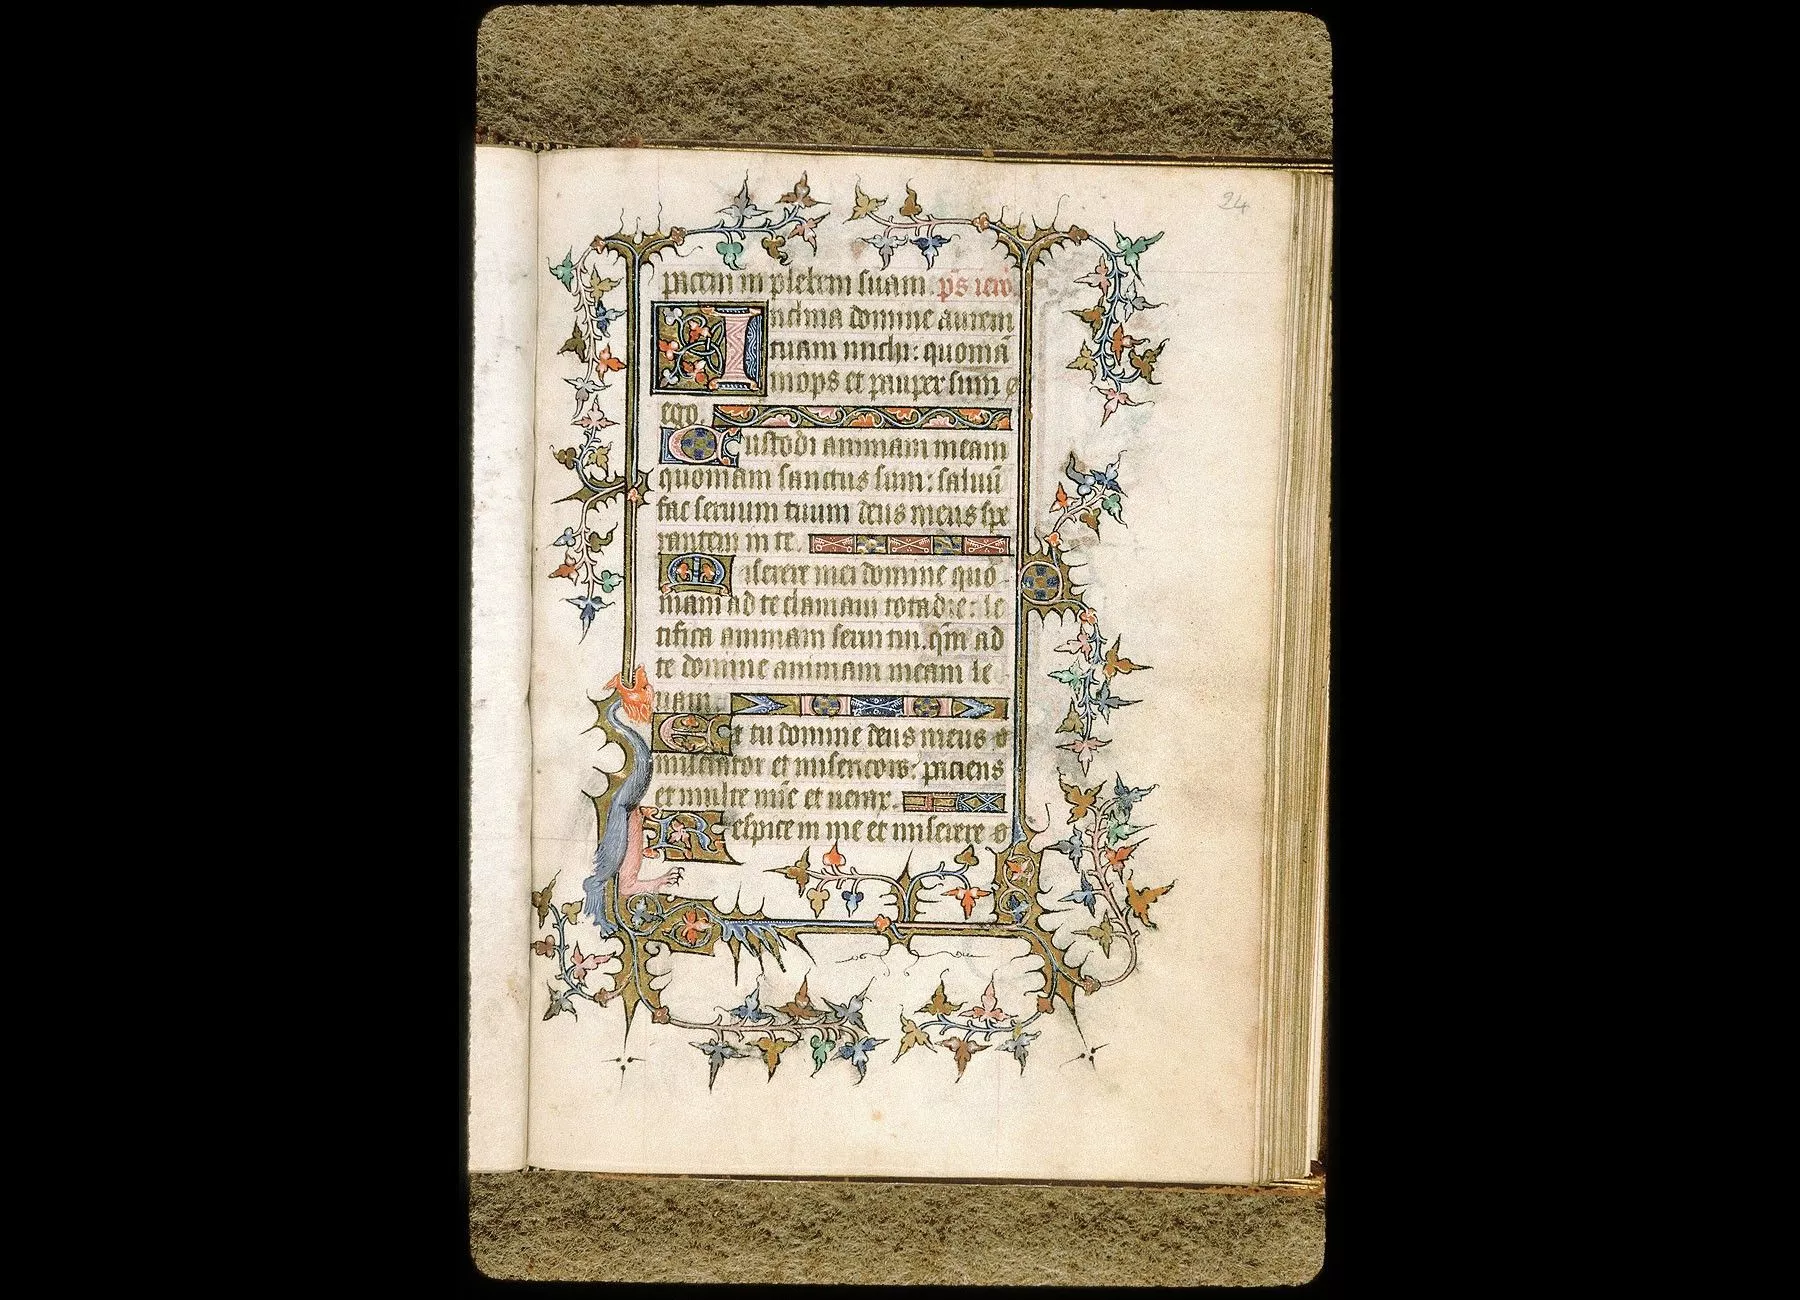 24
pacem in plebem suam. p̄s ieiū
Inclina domine aurem
tuam michi: quoniā
inops et pauper sum e
ego.
Custodi animam meam
quoniam sanctus sum: saluū
fac seruum tuum deus meus spe
rantem in te.
Miserere mei domine quō
niam ad te clamaui tota die: le
tifica animam serui tui. qm̄ ad
te domine animam meam le
uaui.
Et tu domine deus meus o
miserator et misericors: paciens
et multe mīe et uerax.
Respice in me et miserere o